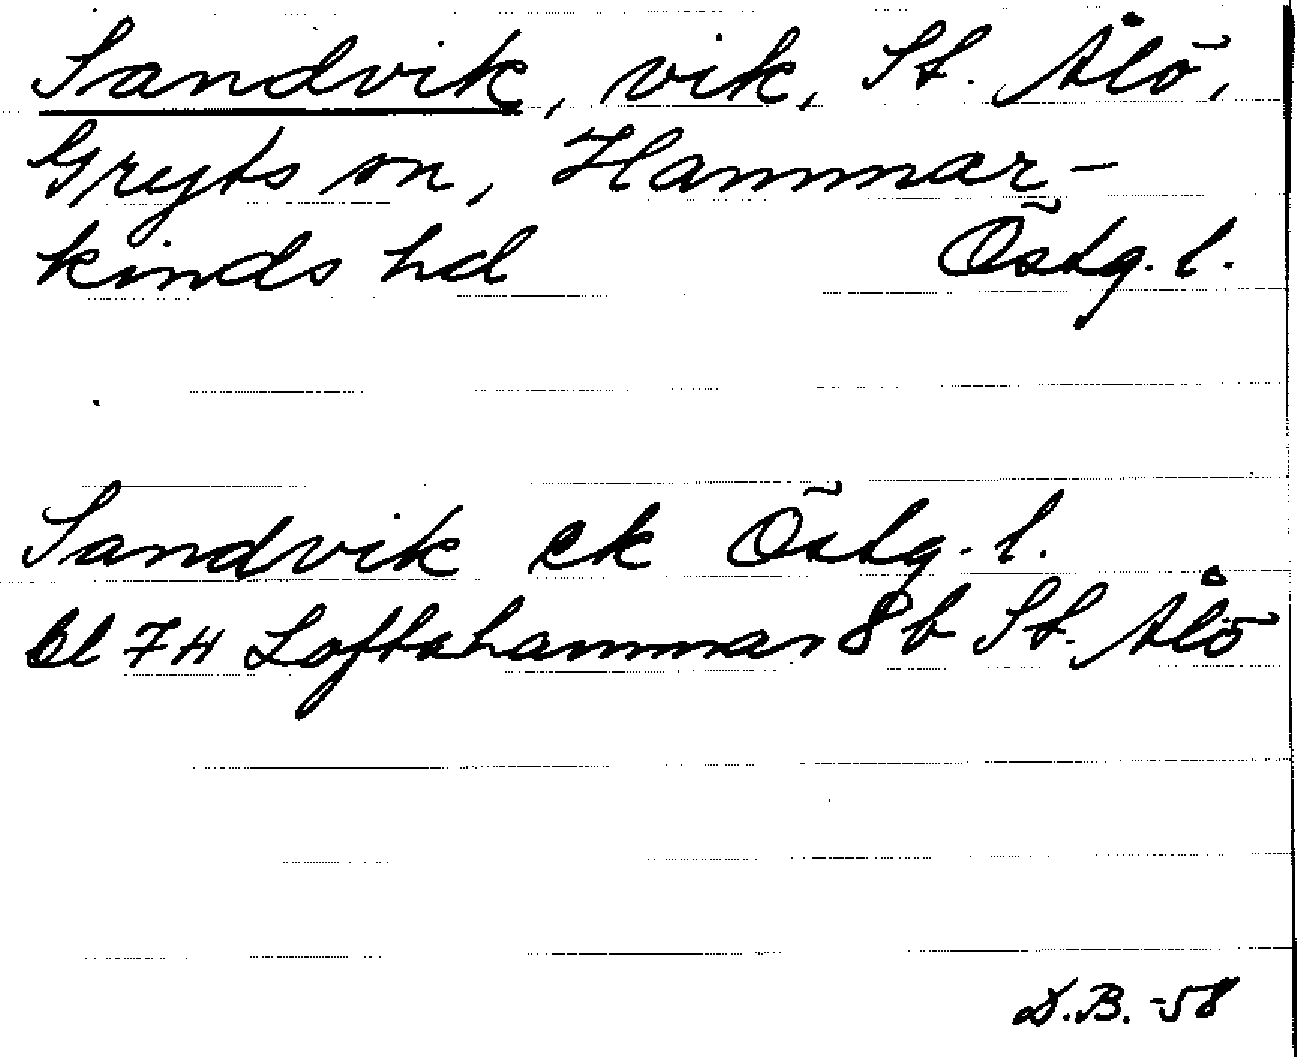 Sandvik, vik, St. Ålö,
Gryts sn, Hammar-
kinds hd Östg. l.
Sandvik ek Östg. l.
Bl 74 Loftahammar 8b St. Ålö
D.B. -58